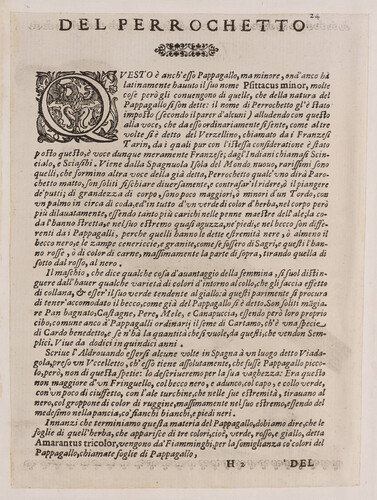 24
DEL PERROCHETTO
QVESTO è anch'esso Pappagallo, ma minore, ond'anco hà
latinamente hauuto il suo nome Psittacus minor, molte
cose però gli conuengono di quelle, che della natura del
Pappagallo si son dette: il nome di Perrochetto gl'è stato
imposto (secondo il parer d'alcuni) alludendo con questo
alla voce, che da esso ordinariamente si sente, come altre
volte si è detto del Verzellino, chiamato da i Franzesi
Tarin, da i quali pur con l'istessa consideratione è stato
posto questo, è voce dunque meramente Franzese; dagl'Indiani chiamasi Scin-
cialo, e Sciaski. Viene dalla Spagnuola Isola del Mondo nuouo, rarissimi sono
quelli, che formino altra voce della già detta, Perrochetto qualc'vno dirà Paro-
chetto matto, son soliti fischiare diuersamente, e contrafar'il ridere, ò il piangere
de' putti; di grandezza di corpo, sono poco maggiori, ò minori d'un Tordo, con
un palmo in circa di coda, ed'in tutto d'un verde di color d'herba, nel corpo però
più dilauatamente, essendo tanto più carichi nelle penne maestre dell'ale; la co-
da l'hanno stretta, e nel suo estremo quasi aguzza, ne' piedi, e nel becco son diffe-
renti da i Pappagalli, perche quelli hanno le dette estremità nere, ò almeno il
becco nero, e le zampe cenericcie, e granite, come se fossero di Sagrì, e questi l'han-
no rosse, ò di color di carne, massimamente la parte di sopra, tirando quella di
sotto dal rosso, al nero.
Il maschio, che dice qualche cosa d'auantaggio della femmina, si suol distin-
guere dall'hauer qualche varietà di colori d'intorno al collo, che gli faccia effetto
di collana, & esser'il suo verde tendente al giallo: à questi parimente si procura
di tener'accomodato il becco, come già del Pappagallo si è detto. Son soliti mägia-
re Pan bagnato, Castagne, Pere, Mele, e Canapuccia, essendo però loro proprio
cibo, comune anco à Pappagalli ordinarij il seme di Cartamo, ch'è vna specie
di Cardo benedetto, se n'hà la quantità che si vuole, da questi, che vendon Sem-
plici. Viue da dodici in quindici anni.
Scriue l'Aldrouando essersi alcune volte in Spagna à un luogo detto Viada-
gola, preso vn Vccelletto, ch'egli tiene assolutamente, che fusse Pappagallo picco-
lo, però, non di questa spetie: lo descriueremo per la sua vaghezza: Era questo
non maggiore d'vn Fringuello, col becco nero, e adunco, col capo, e collo verde,
con un poco di ciuffetto, con l'ale turchine, che nelle sue estremità, tirauano al
nero, col groppone di color di ruggine, massimamente nel suo estremo, essendo del
medesimo nella pancia, co' fianchi bianchi, e piedi neri.
Innanzi che terminiamo questa materia del Pappagallo, dobiamo dire, che le
foglie di quell'herba, che apparisce di tre colori, cioè, verde, rosso, e giallo, detta
Amarantus tricolor, vengono da' Fiamminghi, per la somiglianza co' colori del
Pappagallo, chiamate foglie di Pappagallo.
H 2 DEL